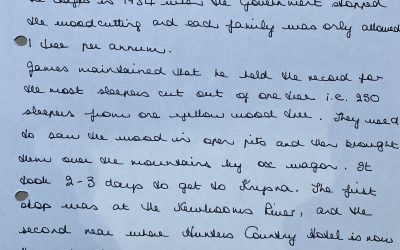 the chaps in 1934 when the Government stopped
the woodcutting and each family was only allowed
1 tree per annum.
James maintained that he held the record for
the most sleepers cut out of one tree i.e. 250
sleepers from one yellow wood tree. They used
to saw the wood in open pits and then brought
them over the mountains by ox wagon. It
took 2-3 days to get to Knysna. The first
stop was at the River, and the
second near where Hunters Country Hotel is now